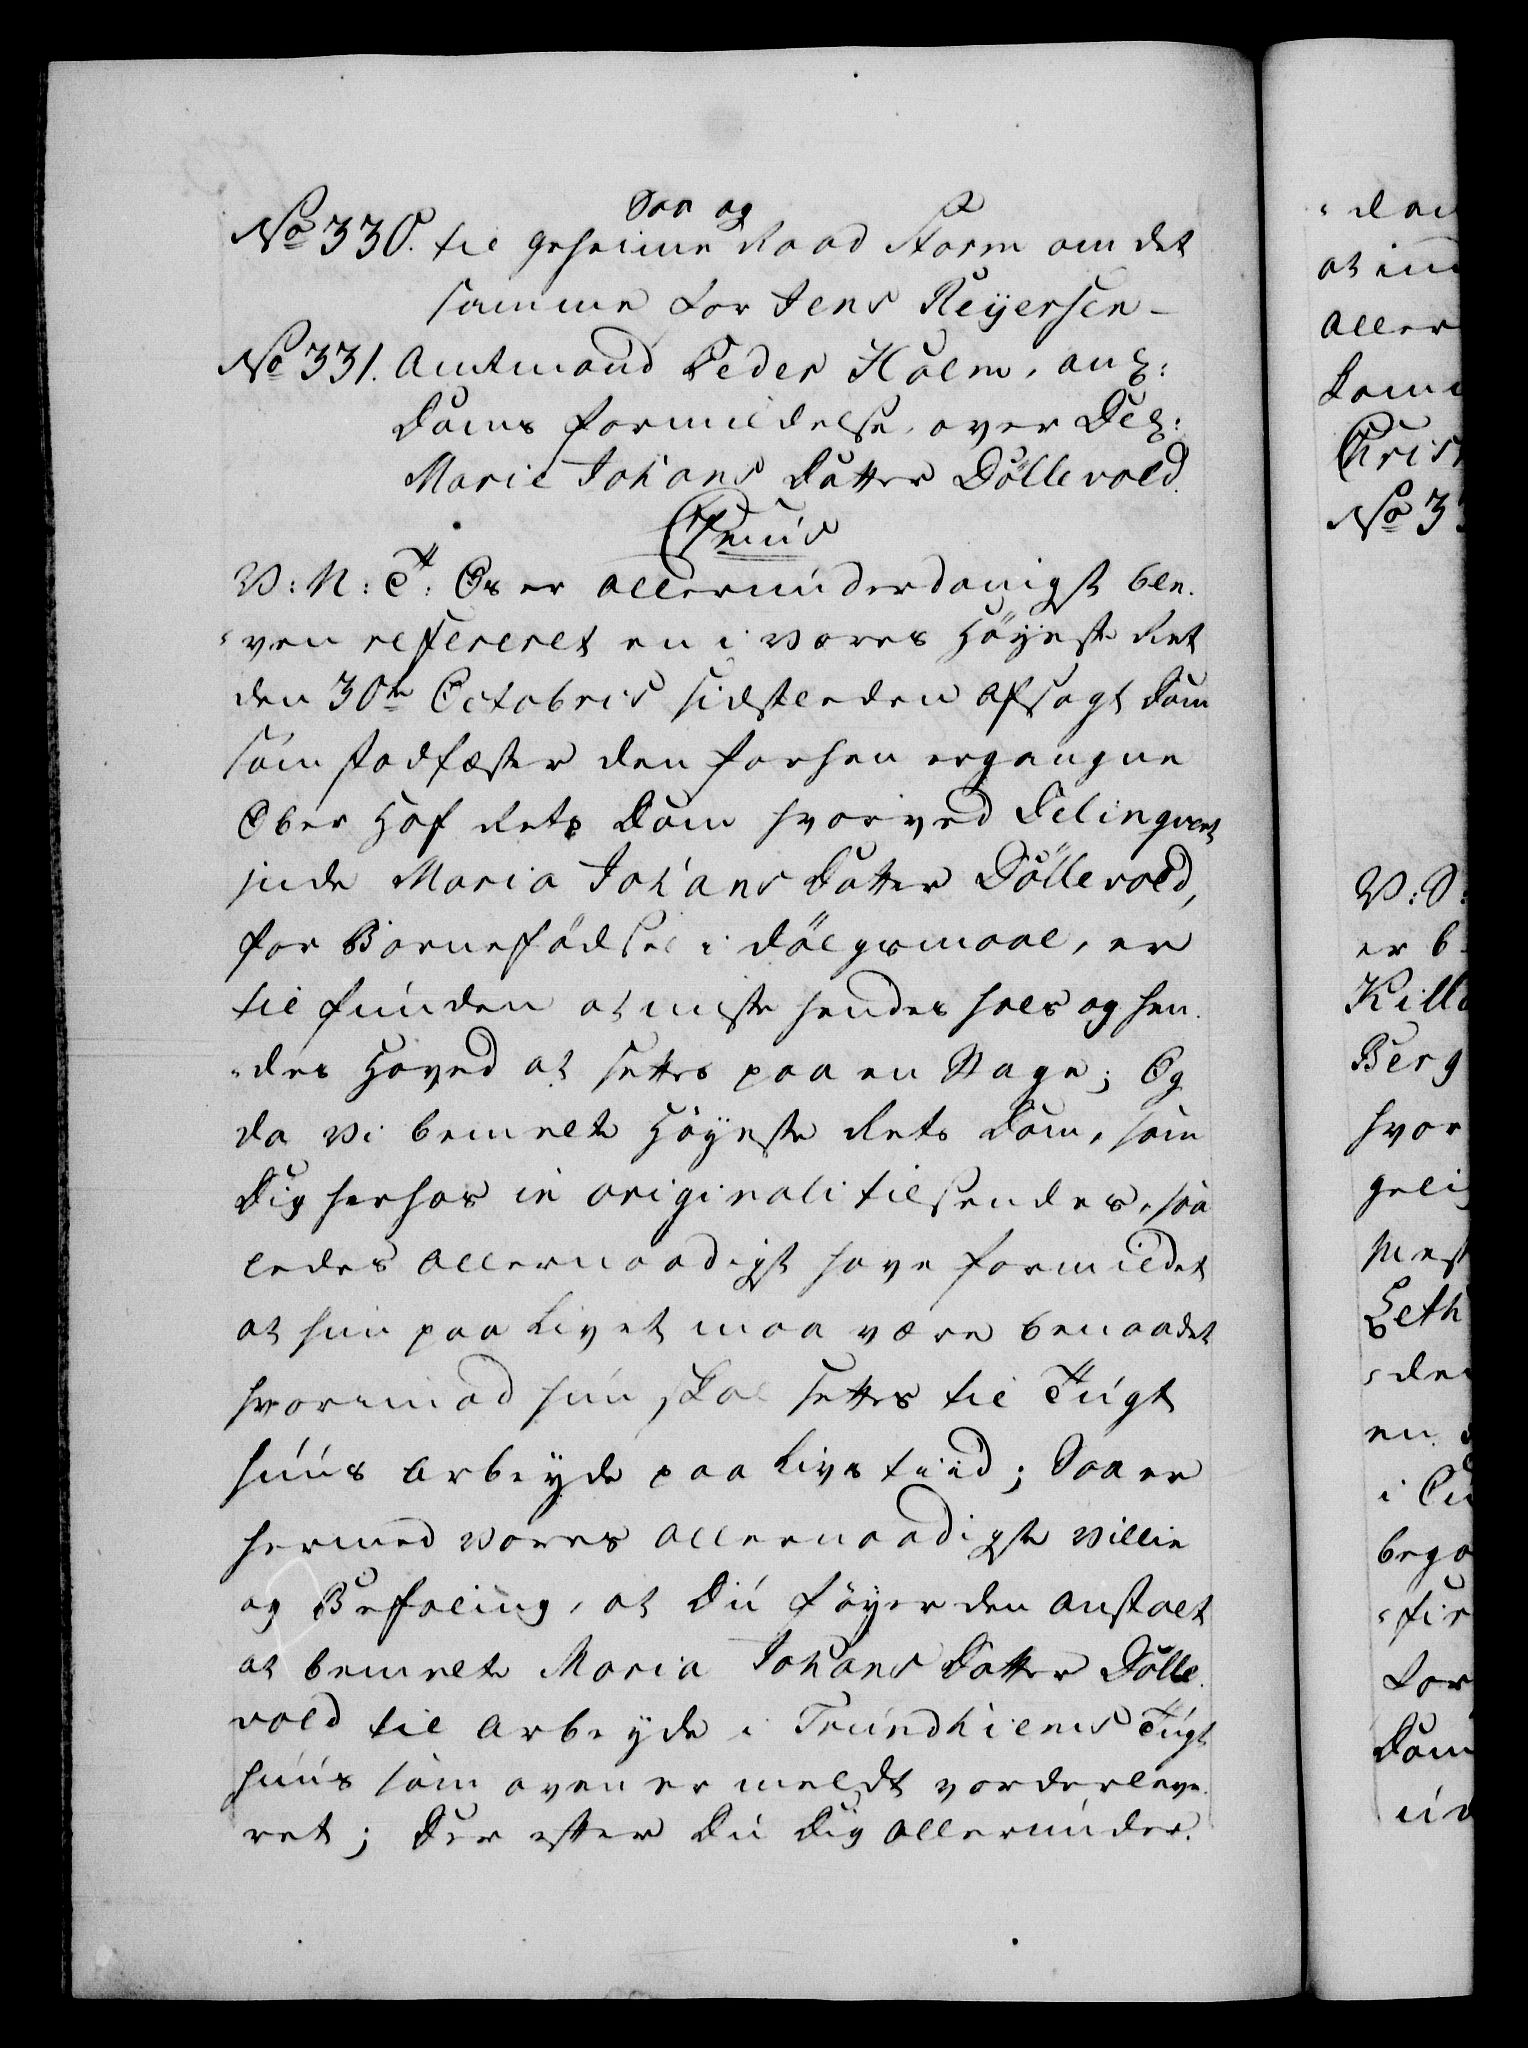 Saa og
No 330. til geheime Raad Storm om det
samme for Jens Reÿersen –
No 331. Amtmand Peder Holm, ang:
Doms formildelse, over Del:
Marie Johans Datter Döllevold.
V: N: T: Os er allerunderdanigst ble-
ven refereret en i vores Höÿeste Ret
den 30te Octobris sidstleeden afsagt Dom
som stadfæster den forhen ergangne
Ober Hof Rets Dom hvorved Delinqvent
inde Maria Johans Datter Döllevold,
for Barnefödsel i dölgsmaal, er
til funden at miste hendes hals og hen-
des Hoved at settes paa en Stage; Og
da vi bemelte Höÿeste Rets Dom, som
Dig herhos in originali tilsendes, saa
ledes allernaadigst have formildet
at hun paa Livet maa være benaadet
hvorimod hun skal settes til Tugt
huus arbeÿde paa Livs tiid; Saa er
hermed vores allernaadigste villie
og Befaling, at Du föÿer den anstalt
at bemelte Maria Johans Datter Dölle-
vold til arbeÿde i Trundhiems Tugt
huus som oven er meldt vorder leve-
ret; Der efter Du Dig allerunder-
- den
at ind
aller
No 33
V: S:
er b
Berg
hvor
gelig
Mest
en
i
Dom